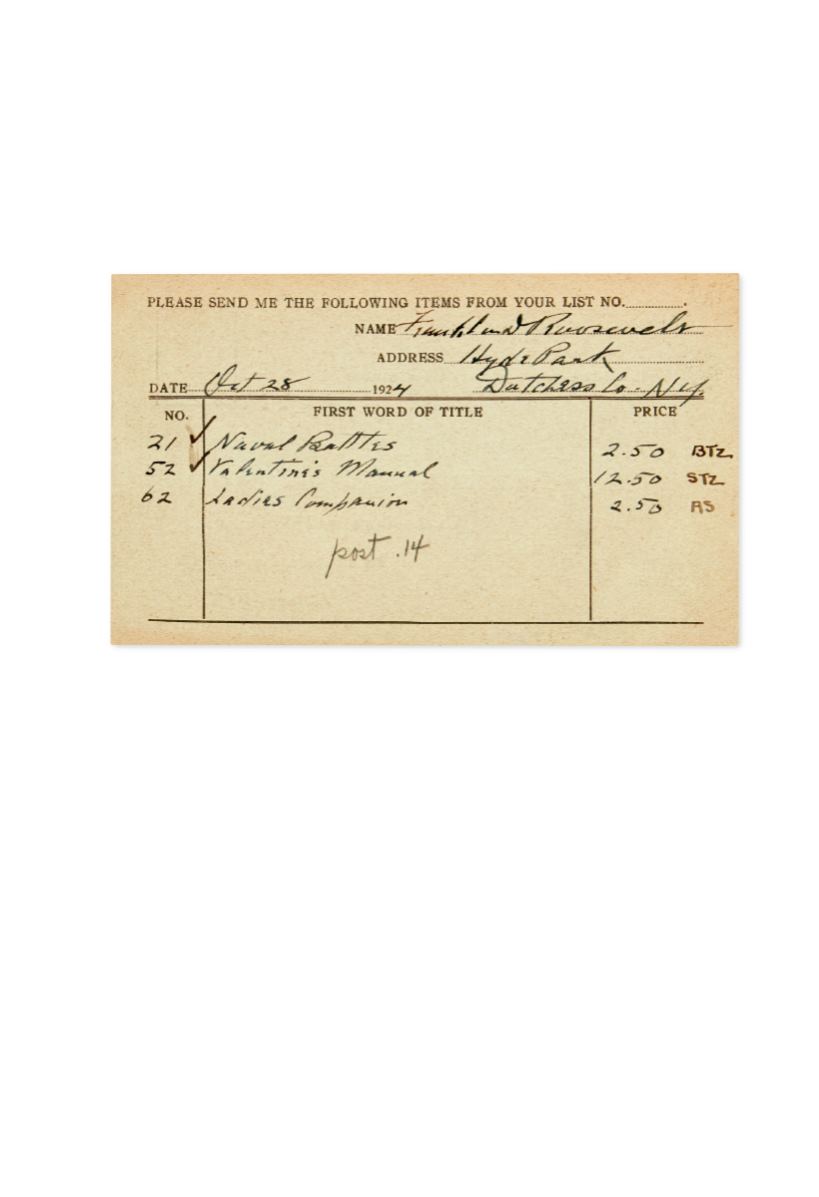 PLEASE SEND ME THE FOLLOWING ITEMS FROM YOUR LIST NO. .
NAME Franklin D Roosevelt
ADDRESS Hyde Park
DATE Oct 28 1924 Dutchess Co. N.Y.
NO. FIRST WORD OF TITLE PRICE
21 ✓ Naval Battles 2.50 BTZ
52 ✓ Valentine's Manual 12.50 STZ
62 Ladies Companion 2.50 AS
post .14